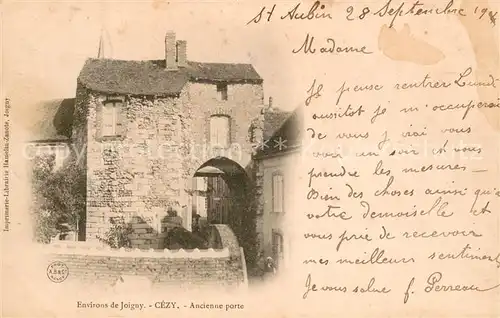 St Aubin 28 Septembre 19
Madame
Je pense rentrer Lundi
aussitot je m'occuperai
de vous j'irai vous
voir un soir et vous
prendre les mesures —
Bien des choses ainsi qu'a
votre demoiselle et
vous prie de recevoir
mes meilleurs sentiments
Je vous salue J. Perreau
Imprimerie-Librairie Hamelin-Zanote, Joigny
Environs de Joigny. - CÉZY. - Ancienne porte